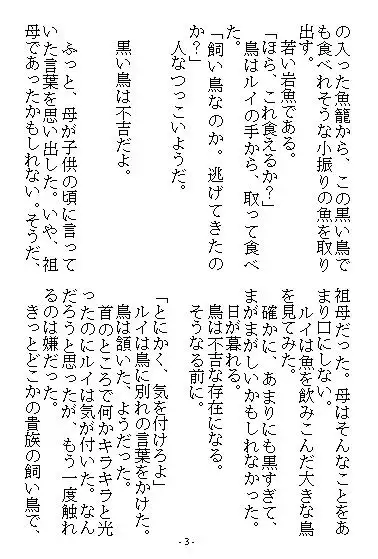 の入った魚籠から、この黒い鳥で
も食べれそうな小振りの魚を取り
出す。
　若い岩魚である。
「ほら、これ食えるか？」
　鳥はルイの手から、取って食べ
た。
「飼い鳥なのか。逃げてきたの
か？」
　人なつっこいようだ。
　黒い鳥は不吉だよ。
　ふっと、母が子供の頃に言って
いた言葉を思い出した。いや、祖
母であったかもしれない。そうだ、
祖母だった。母はそんなことをあ
まり口にしない。
　ルイは魚を飲みこんだ大きな鳥
を見てみた。
　確かに、あまりにも黒すぎて、
まがまがしいかもしれなかった。
　日が暮れる。
　鳥は不吉な存在になる。
　そうなる前に。
「とにかく、気を付けろよ」
　ルイは鳥に別れの言葉をかけた。
　鳥は頷いた、ようだった。
　首のところで何かキラキラと光
ったのにルイは気が付いた。なん
だろうと思ったが、もう一度触れ
るのは嫌だった。
　きっとどこかの貴族の飼い鳥で、
- 3 -